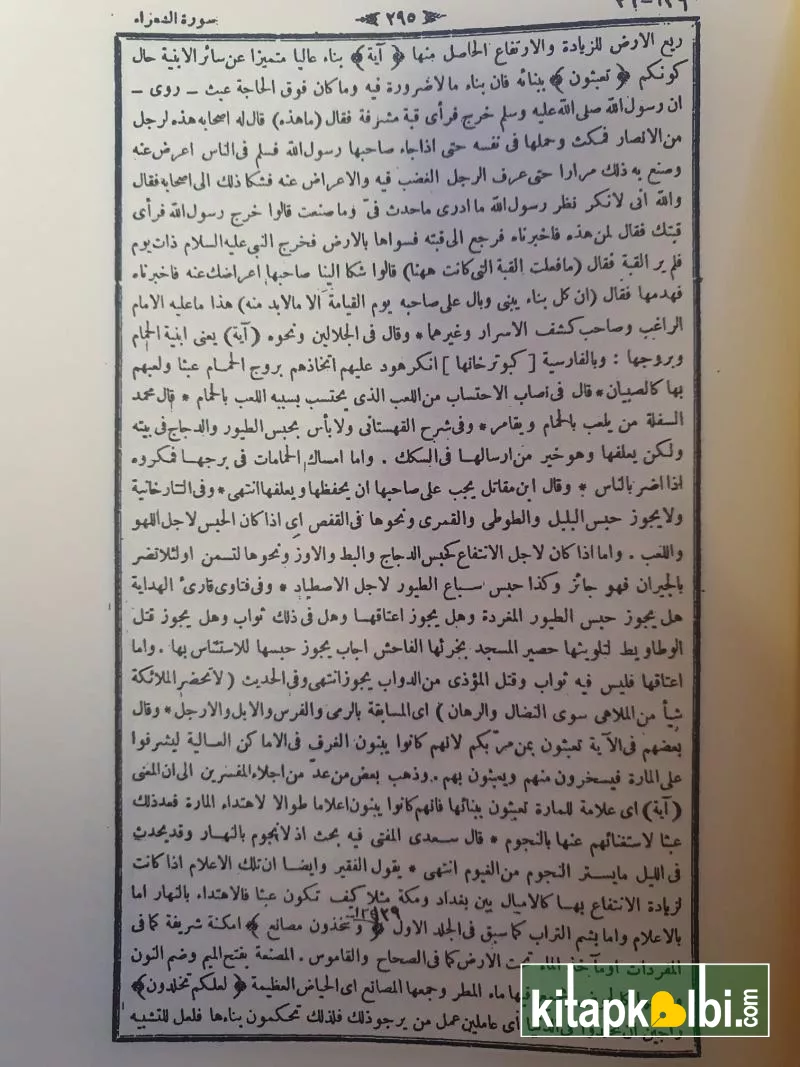 سورة الشعراء
٢٩٥
ريع الارض للزيادة والارتفاع الحاصل منها ﴿ آية ﴾ بناء عاليا متميزا عن سائر الابنية حال
كونكم ﴿ تعبثون ﴾ ببنائه فان بناء مالاضرورة فيه وماكان فوق الحاجة عبث ـ روى ـ
ان رسول الله صلى الله عليه وسلم خرج فرأى قبة مشرفة فقال (ماهذه) قال له اصحابه هذه لرجل
من الانصار فمكث وحملها فى نفسه حتى اذاجاء صاحبها رسول الله فسلم فى الناس اعرض عنه
وصنع به ذلك مرارا حتى عرف الرجل الغضب فيه والاعراض عنه فشكا ذلك الى اصحابه فقال
والله انى لانكر نظر رسول الله ما ادرى ماحدث فىّ وماصنعت قالوا خرج رسول الله فرأى
قبتك فقال لمن هذه فاخبرناه فرجع الى قبته فسواها بالارض فخرج النبى عليه السلام ذات يوم
فلم ير القبة فقال (مافعلت القبة التى كانت ههنا) قالوا شكا الينا صاحبها اعراضك عنه فاخبرناه
فهدمها فقال (ان كل بناء يبنى وبال على صاحبه يوم القيامة الا مالابد منه) هذا ماعليه الامام
الراغب وصاحب كشف الاسرار وغيرهما * وقال فى الجلالين ونحوه (آية) يعنى ابنية الحمام
وبروجها : وبالفارسية [ كبوتر خانها ] انكر هود عليهم اتخاذهم بروج الحمام عبثا ولعبهم
بها كالصبيان * قال فى نصاب الاحتساب من اللعب الذى يحتسب بسببه اللعب بالحمام * قال محمد
السفلة من يلعب بالحمام ويقامر * وفى شرح القهستانى ولابأس بحبس الطيور والدجاج فى بيته
ولكن يعلفها وهو خير من ارسالها فى السكك . واما امساك الحمامات فى برجها فمكروه
اذا اضر بالناس * وقال ابن مقاتل يجب على صاحبها ان يحفظها ويعلفها انتهى * وفى التتارخانية
ولايجوز حبس البلبل والطوطى والقمرى ونحوها فى القفص اى اذا كان الحبس لاجل اللهو
واللعب . واما اذا كان لاجل الانتفاع كحبس الدجاج والبط والاوز ونحوها لتسمن اولئلاتضر
بالجيران فهو جائز وكذا حبس سباع الطيور لاجل الاصطياد * وفى فتاوى قارئ الهداية
هل يجوز حبس الطيور المغردة وهل يجوز اعتاقها وهل فى ذلك ثواب وهل يجوز قتل
الوطاويط لتلويثها حصير المسجد بخرئها الفاحش اجاب يجوز حبسها للاستئناس بها . واما
اعتاقها فليس فيه ثواب وقتل المؤذى من الدواب يجوز انتهى وفى الحديث (لاتحضر الملائكة
شيأ من الملاهى سوى النضال والرهان) اى المسابقة بالرمى والفرس والابل والارجل * وقال
بعضهم فى الآية تعبثون بمن مرّ بكم لانهم كانوا يبنون الغرف فى الاماكن العالية ليشرفوا
على المارة فيسخرون منهم ويعبثون بهم . وذهب بعض من عدّ من اجلاء المفسرين الى ان المعنى
(آية) اى علامة للمارة تعبثون ببنائها فانهم كانوا يبنون اعلاما طوالا لاهتداء المارة فعد ذلك
عبثا لاستغنائهم عنها بالنجوم * قال سعدى المفتى فيه بحث اذ لانجوم بالنهار وقد يحدث
فى الليل مايستر النجوم من الغيوم انتهى * يقول الفقير وايضا ان تلك الاعلام اذا كانت
لزيادة الانتفاع بها كالاميال بين بغداد ومكة مثلا كيف تكون عبثا فالاهتداء بالنهار اما
بالاعلام واما بشم التراب كما سبق فى الجلد الاول ﴿ وتتخذون مصانع ﴾ امكنة شريفة كما فى
المفردات تحت الارض كما فى الصحاح والقاموس . المصنعة بفتح الميم وضم النون
فيها ماء المطر وجمعها المصانع اى الحياض العظيمة ﴿ لعلكم تخلدون ﴾
اى عاملين عمل من يرجو ذلك فلذلك تحكمون بناءها فلعل للتشبيه
kitapkalbi.com